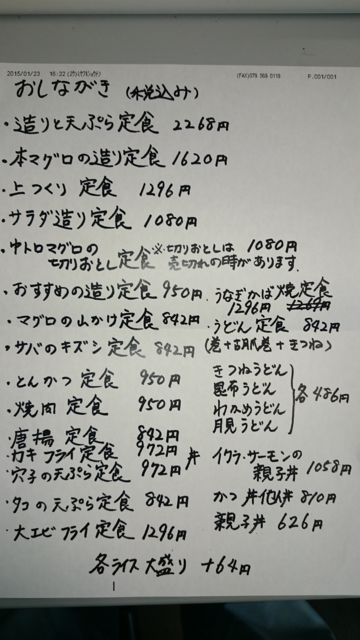 2015/01/23 16:22 (FAX)078 569 0119 P.001/001
おしながき (税込み)
・造りと天ぷら定食 2268円
・本マグロの造り定食 1620円
・上つくり 定食 1296円
・サラダ造り定食 1080円
・中トロマグロの
切りおとし定食 1080円
※切りおとしは
売切れの時があります.
・おすすめの造り定食 950円
・マグロの山かけ定食 842円
・サバのキズシ 定食 842円
・とんかつ 定食 950円
・焼肉 定食 950円
・唐揚 定食 842円
・カキフライ定食 972円
・穴子の天ぷら定食 972円 丼
・タコの天ぷら定食 842円
・大エビフライ定食 1296円
・うなぎかば焼定食
1296円
・うどん 定食 842円
きつねうどん
昆布うどん
わかめうどん
月見うどん
各486円
イクラ・サーモンの
親子丼 1058円
かつ丼 他人丼 810円
親子丼 626円
各ライス大盛り +64円